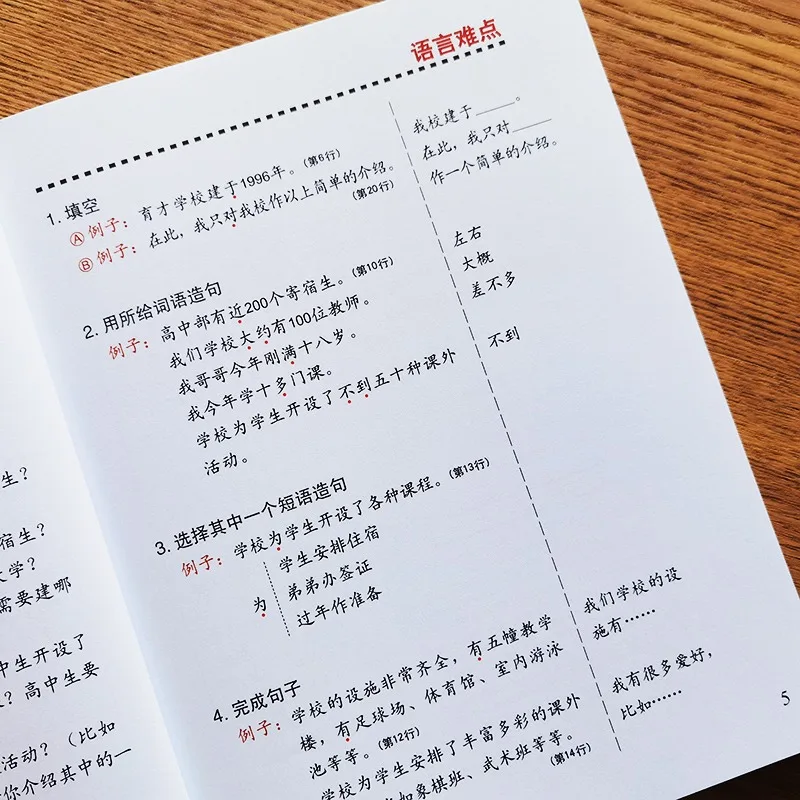 语言难点
1. 填空
Ⓐ 例子：育才学校建于1996年。(第6行)
Ⓑ 例子：在此，我只对我校作以上简单的介绍。
(第20行)
我校建于____。
在此，我只对____
作一个简单的介绍。
2. 用所给词语造句
例子：高中部有近200个寄宿生。(第10行)
我们学校大约有100位教师。
我哥哥今年刚满十八岁。
我今年学十多门课。
学校为学生开设了不到五十种课外
活动。
左右
大概
差不多
不到
3. 选择其中一个短语造句
例子：学校为学生开设了各种课程。(第13行)
为
学生安排住宿
弟弟办签证
过年作准备
4. 完成句子
例子：学校的设施非常齐全，有五幢教学
楼，有足球场、体育馆、室内游泳
池等等。(第12行)
学校为学生安排了丰富多彩的课外
如象棋班、武术班等等。
(第14行)
我们学校的设
施有……
我有很多爱好，
比如……
5
生？
宿生？
大学？
需要建哪
中生开设了
？高中生要
活动？（比如
你介绍其中的一